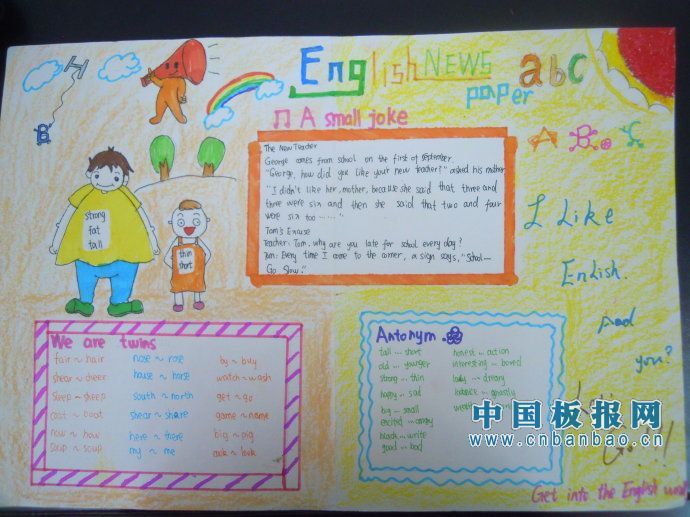 English NEWS
paper
abc
A small joke
A B C
The New Teacher
George comes from school on the first of september.
"George, how did you like your new teacher?" asked his mother
"I didn't like her, mother, because she said that three and
three were six and then she said that two and four
were six too ......"
Tom's Excuse
Teacher: Tom, why are you late for school every day?
Tom: Every time I come to the corner, a sign says, "School—
Go Slow."
strong
fat
tall
thin
short
I Like
English.
And
you?
We are twins
fair ~ hair nose ~ rose by ~ buy
shear ~ cheer house ~ horse watch ~ wash
sleep ~ sheep south ~ north get ~ go
coat ~ boat shear ~ share game ~ name
now ~ how here ~ there big ~ pig
soap ~ soup my ~ me cook ~ look
Antonym
tall ... short honest ... action
old ... younger interesting ... bored
strong ... thin
happy ... sad
big ... small
excited ... angry
black ... write
good ... bad
中国板报网
www.cnbanbao.cn
Get into the English